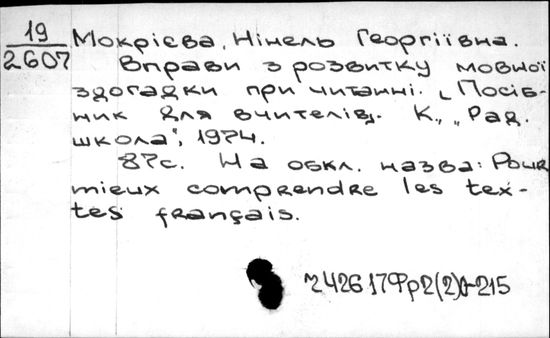 19
2607
Мокрієва, Нінель Георгіївна.
Вправи з розвитку мовної
здогадки при читанні. [Посіб-
ник для вчителів]. К., „Рад.
школа", 1974.
87с. На обкл. назва: Pour
mieux comprendre les tex-
tes français.
z42617Фр2(2)я215